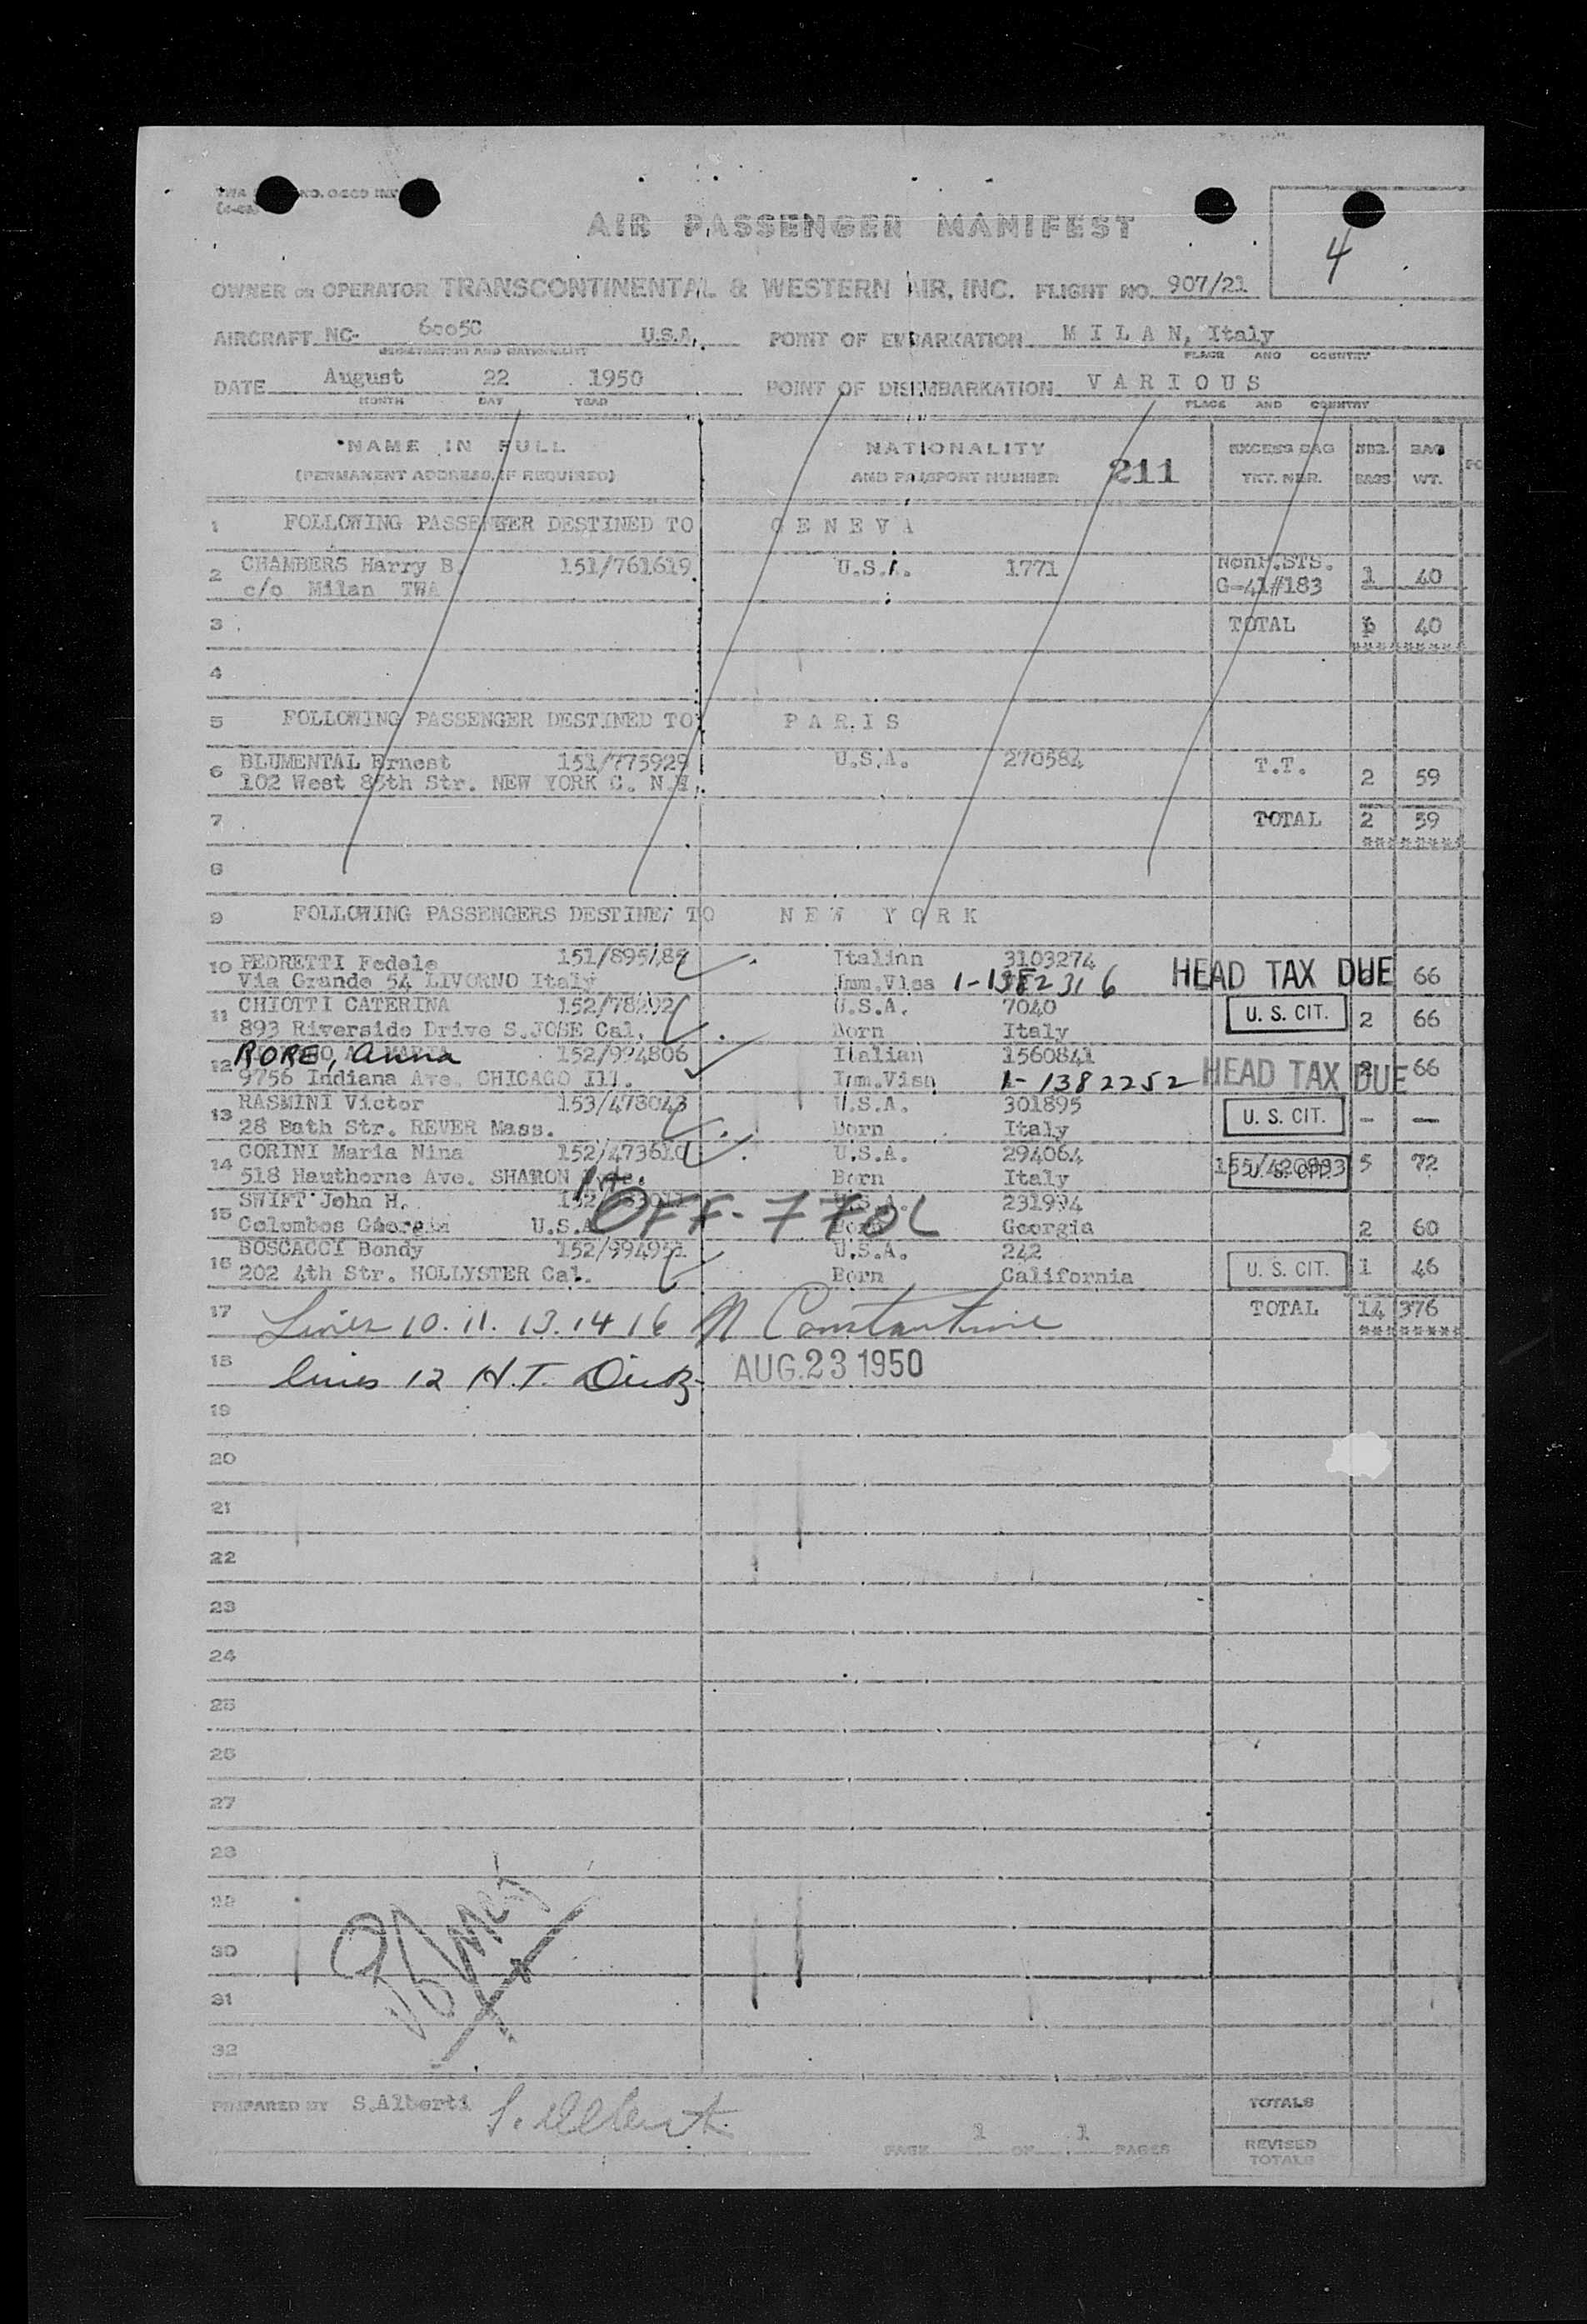 AIR PASSENGER MANIFEST
4
OWNER OR OPERATOR TRANSCONTINENTAL & WESTERN AIR, INC. FLIGHT NO. 907/21
AIRCRAFT NC- 6005C U.S.A. POINT OF EMBARKATION M I L A N, Italy
REGISTRATION AND NATIONALITY PLACE AND COUNTRY
DATE August 22 1950 POINT OF DISEMBARKATION V A R I O U S
MONTH DAY YEAR PLACE AND COUNTRY
NAME IN FULL NATIONALITY EXCESS BAG NBR. BAG
(PERMANENT ADDRESS, IF REQUIRED) AND PASSPORT NUMBER 211 TKT. NBR. BAGS WT.
1 FOLLOWING PASSENGER DESTINED TO G E N E V A
2 CHAMBERS Harry B. 151/761619 U.S.A. 1771 1 40
c/o Milan TWA G-41#183
3 TOTAL 40
4
5 FOLLOWING PASSENGER DESTINED TO P A R I S
6 BLUMENTAL Ernest 151/775929 U.S.A. 270584 T.T. 2 59
102 West 85th Str. NEW YORK C. N.Y.
7 TOTAL 2 59
8
9 FOLLOWING PASSENGERS DESTINED TO N E W Y O R K
10 PEDRETTI Fedele Italian 3103274 HEAD TAX DUE 66
Via Grande 54 LIVORNO Italy Imm.Visa
11 CHIOTTI CATERINA U.S.A. 7040 U. S. CIT. 2 66
893 Riverside Drive S.JOSE Cal. Born Italy
12 RORE, Anna 152/994806 Italian 1560841 HEAD TAX DUE 66
9756 Indiana Ave. CHICAGO Ill. Imm.Visa 1-1382252
13 RASMINI Victor 153/478043 U.S.A. 301895 U. S. CIT. - -
28 Bath Str. REVER Mass. Born Italy
14 CORINI Maria Nina U.S.A. 294064 155/420893 U. S. CIT. 5 72
518 Hauthorne Ave. SHARON Born Italy
15 SWIFT John H. U.S.A. 231994 2 60
Colombos Georgia U.S.A. OFF- Born Georgia
16 BOSCACCI Bondy 152/994951 U.S.A. 242 U. S. CIT. 1 46
202 4th Str. HOLLYSTER Cal. Born California
17 Lines 10. 11. 13. 14 16 N Constantine TOTAL 14 376
18 lines 12 H.T. AUG. 23 1950
19
20
21
22
23
24
25
26
27
28
29
30
31
32
PREPARED BY S.Alberti S. Alberti TOTALS
PAGE 1 OF 1 PAGES REVISED
TOTALS